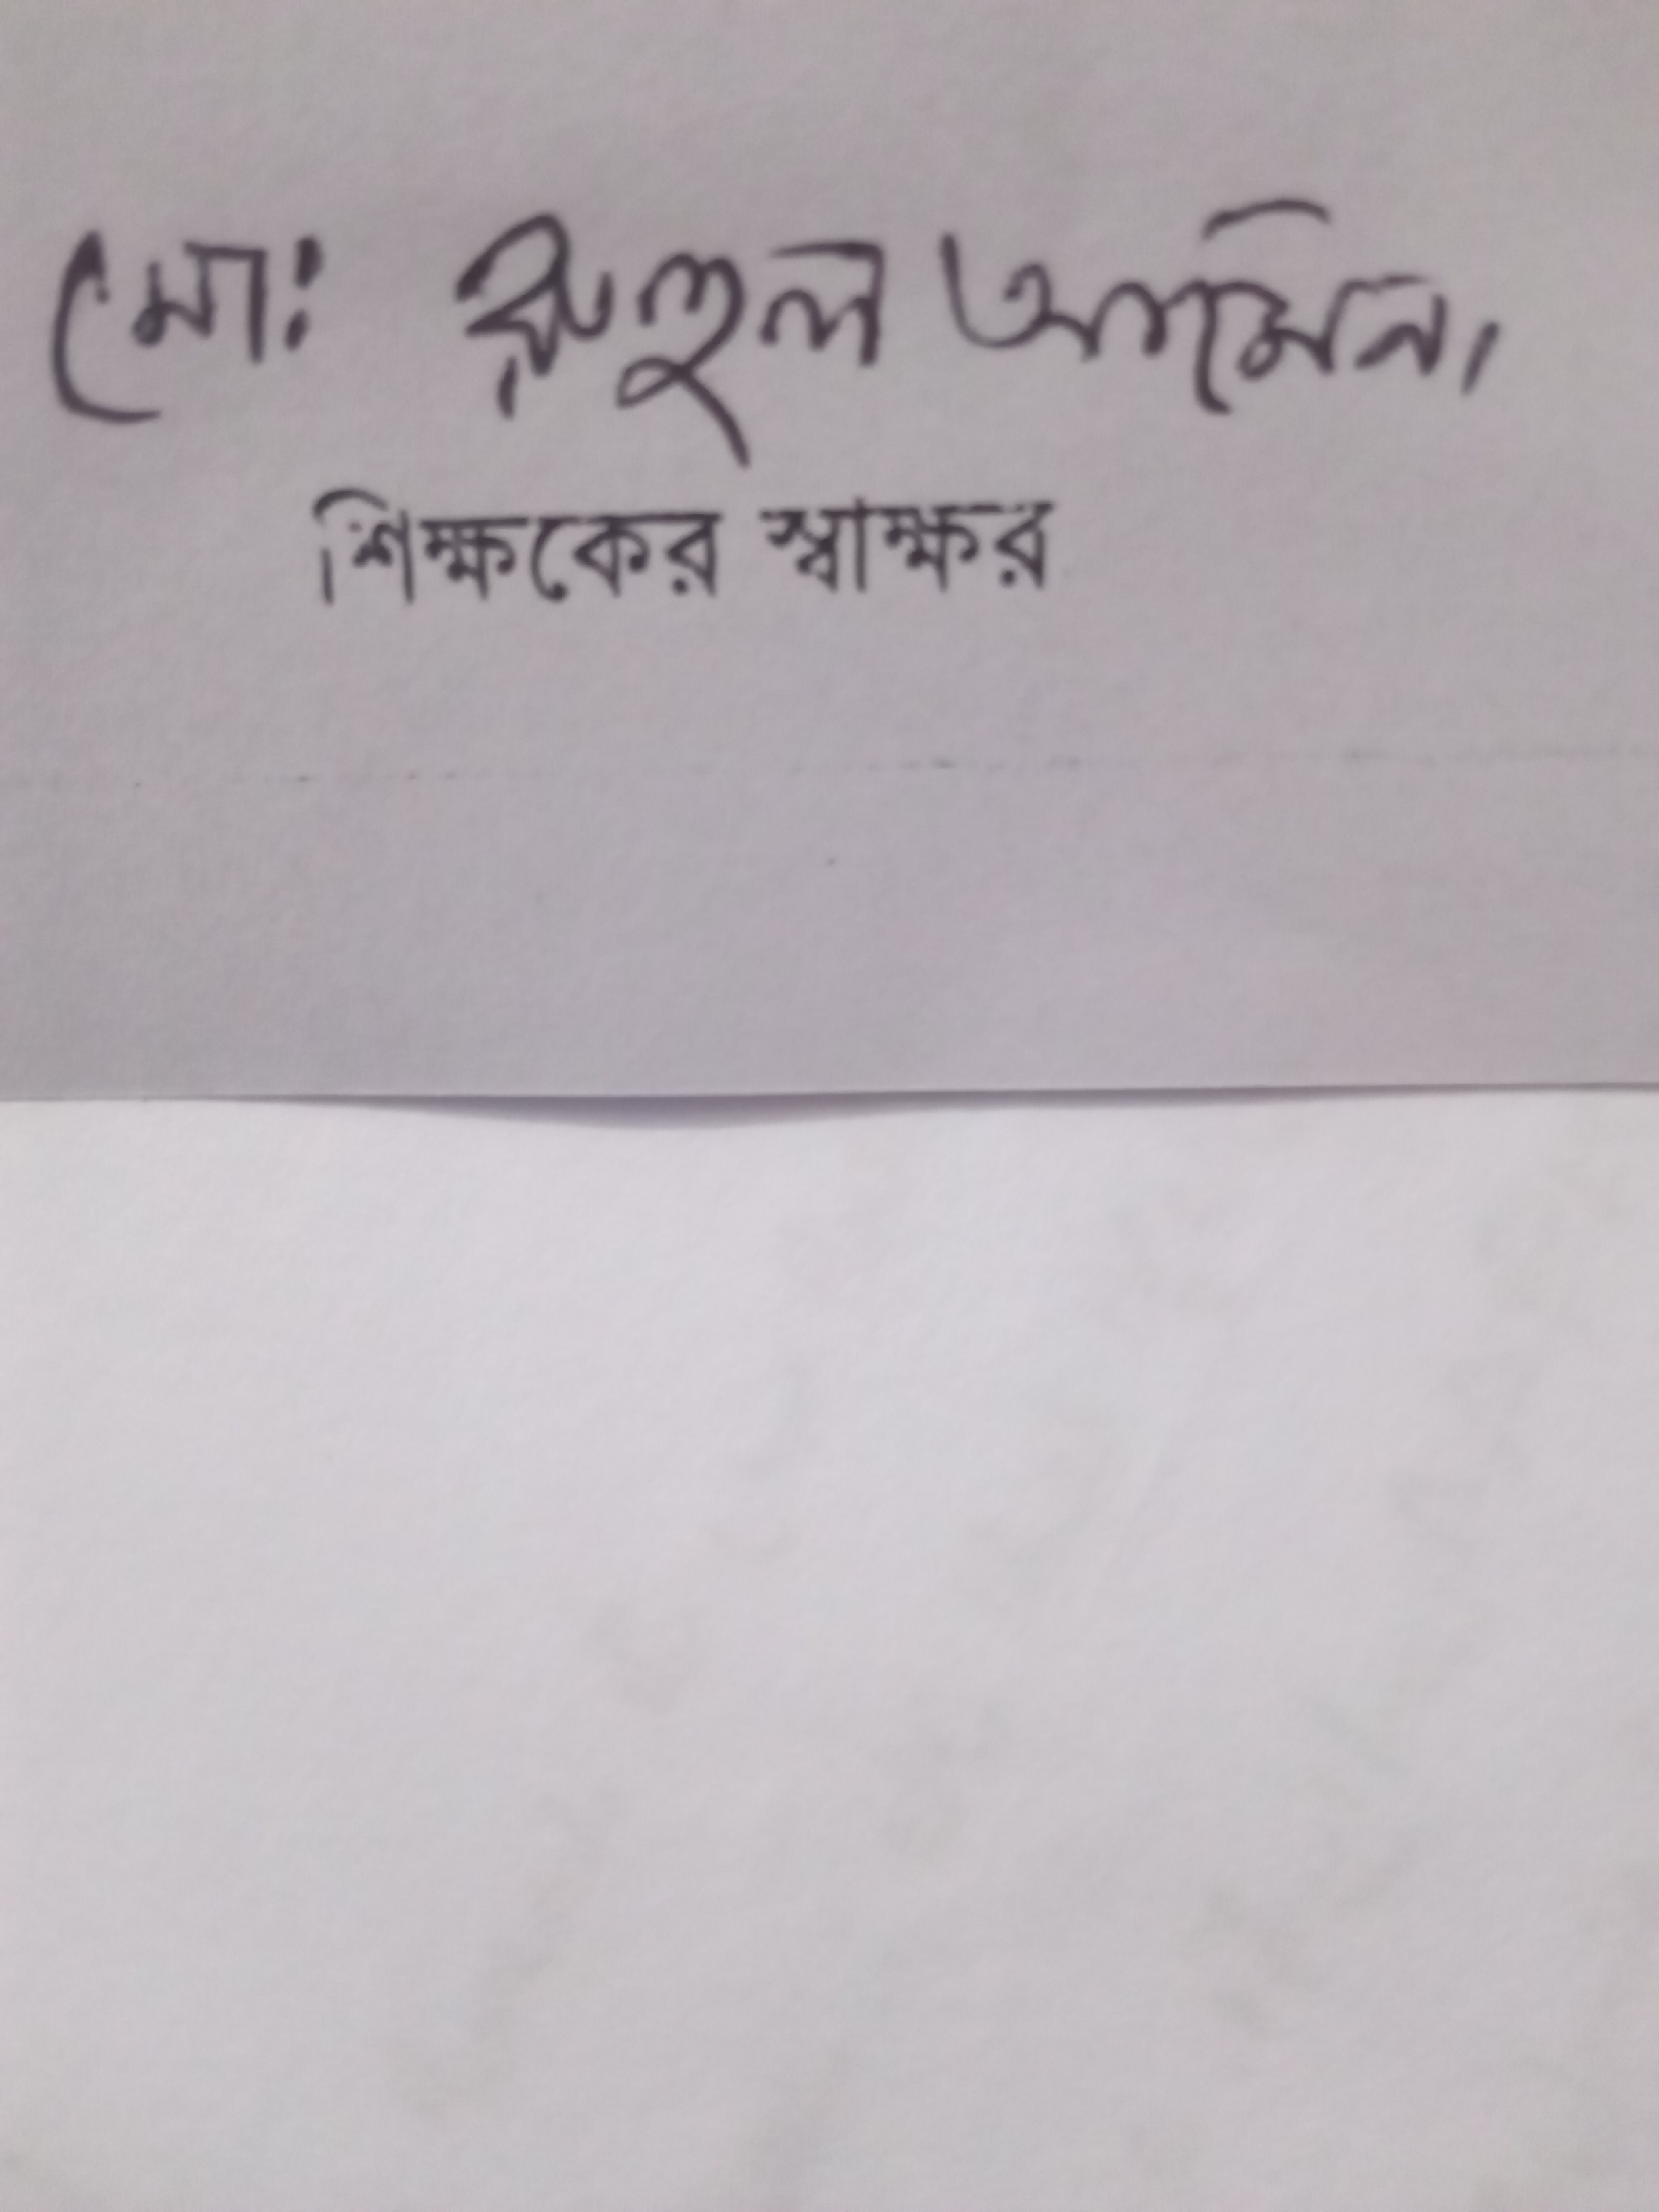 মো: রুহুল আমিন।
শিক্ষকের স্বাক্ষর